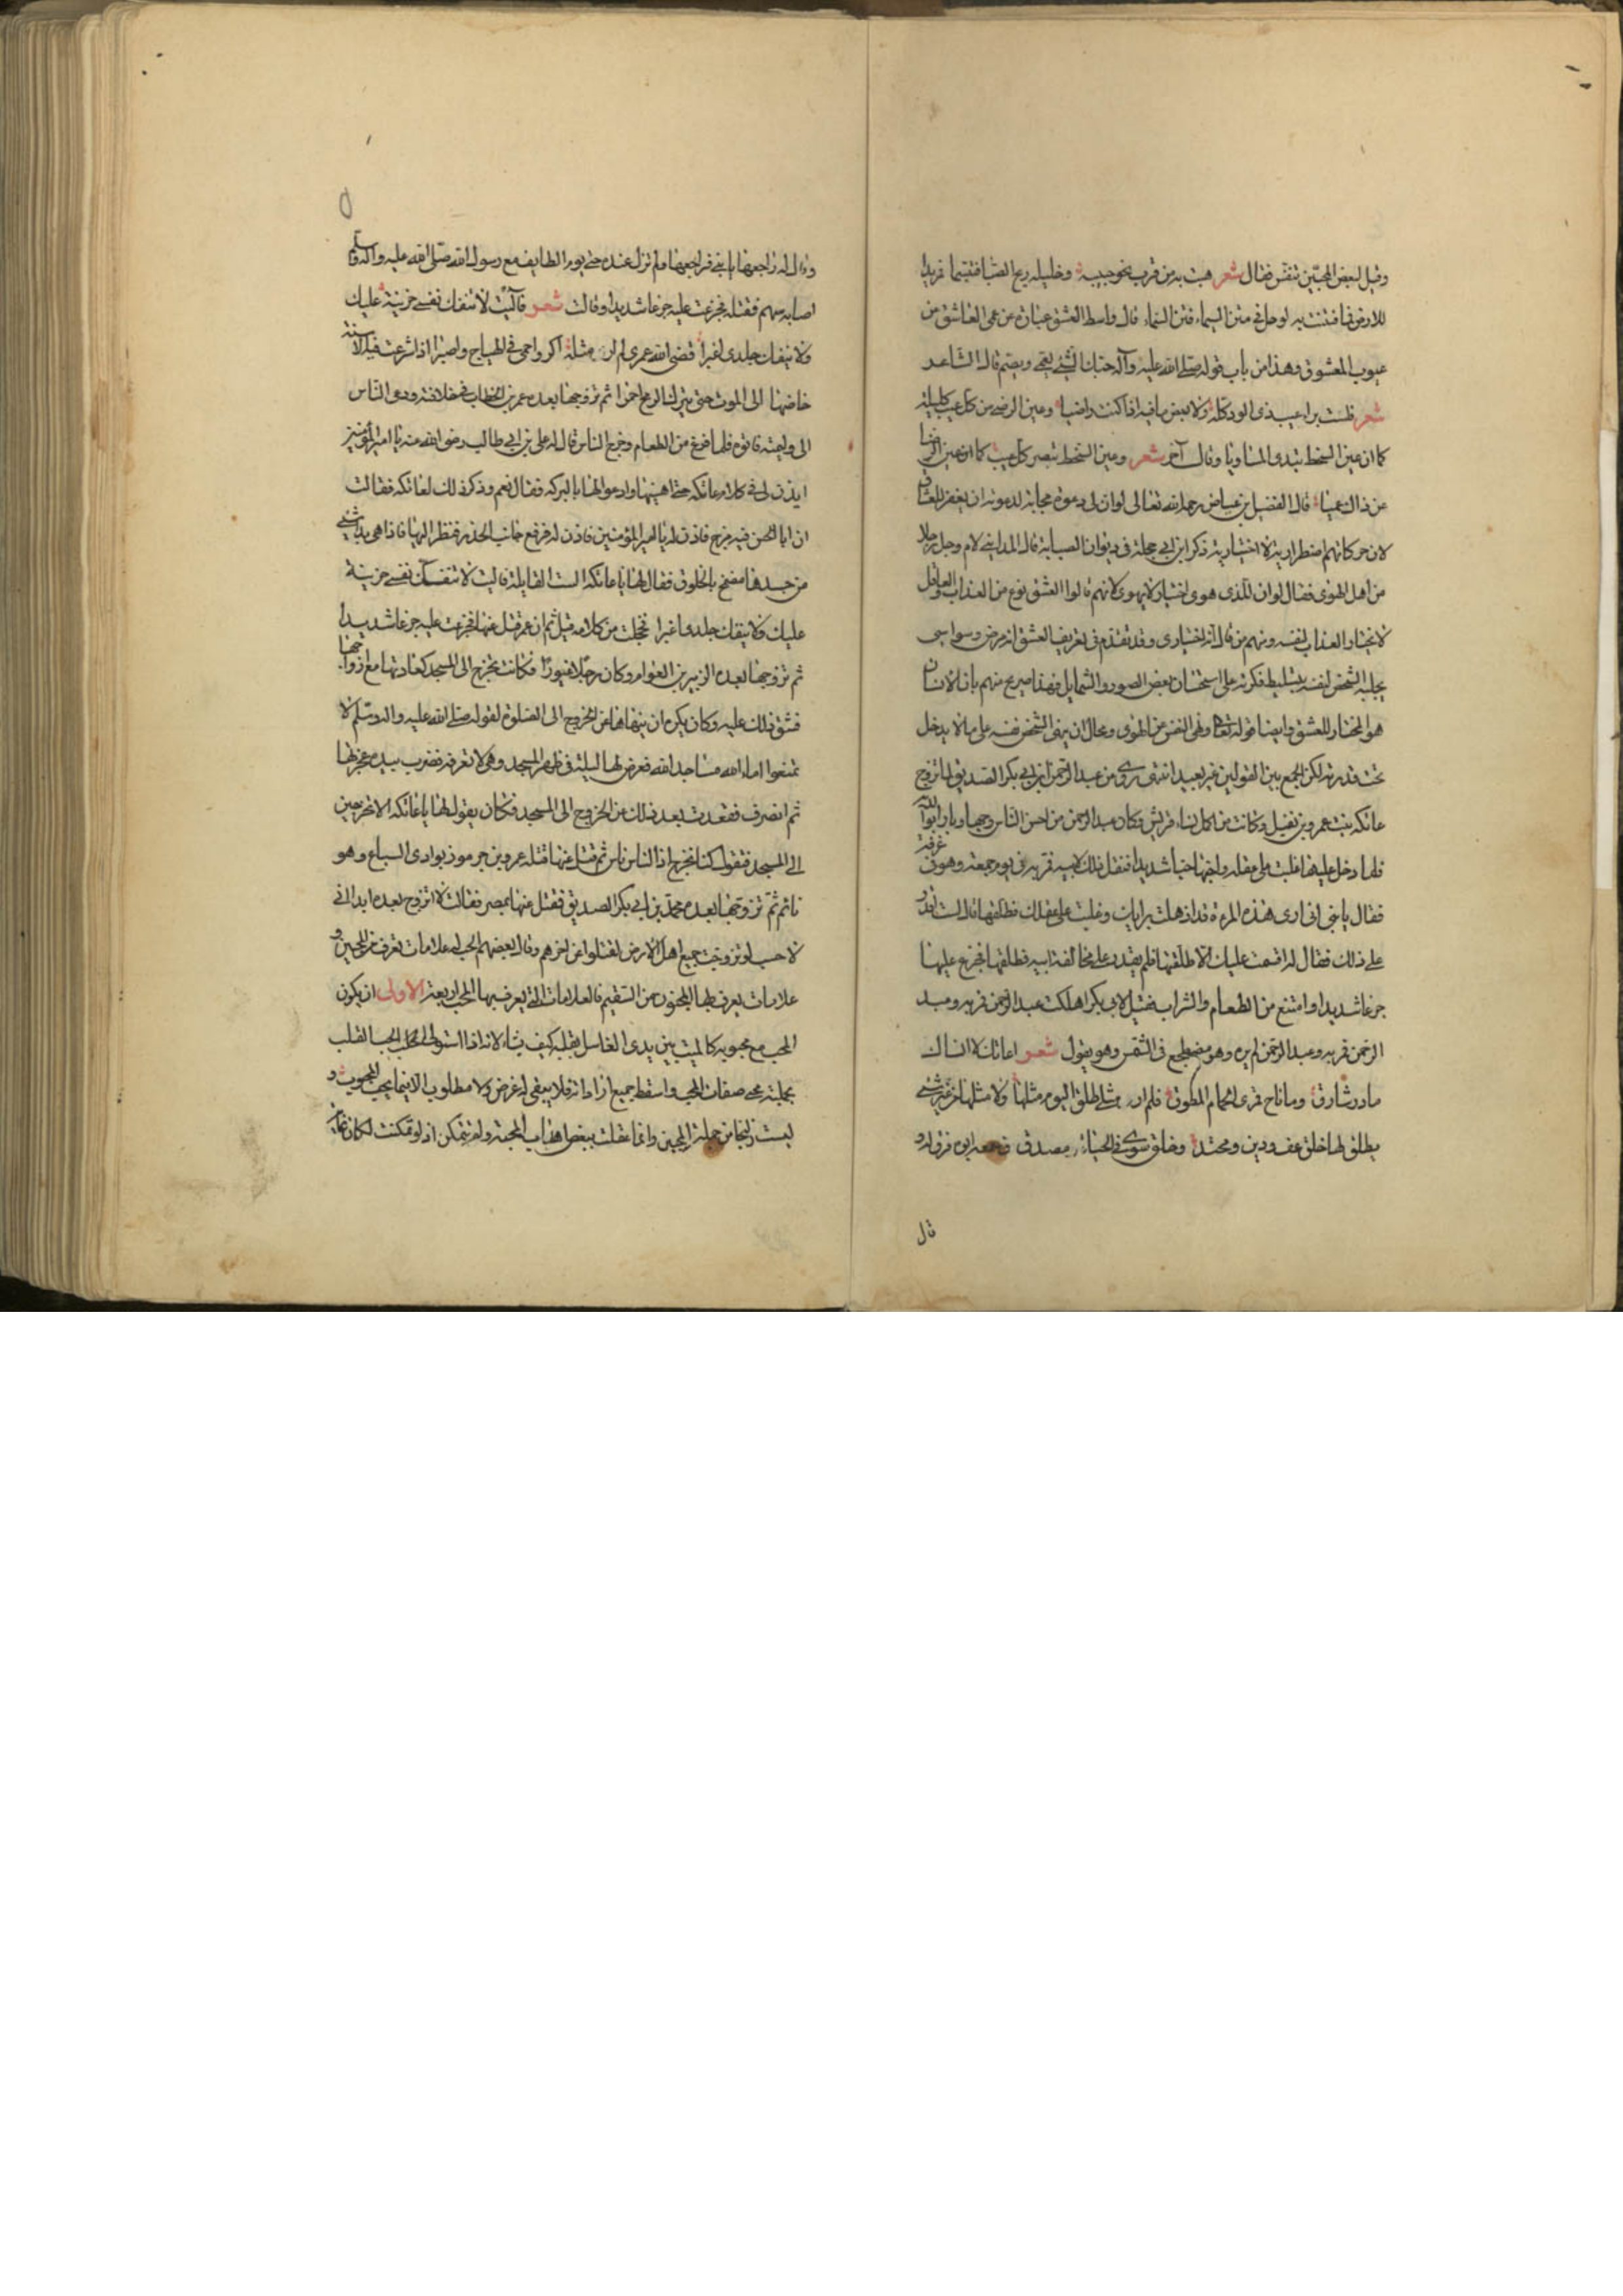 وقيل لبعض المحبين تنفس فقال شعر هبت به من قرب نحو حبيبه وخليله ريح الصبا فتبسما
للارض لوحل في متن السماء فتن السماء قال واسط العشق عبارة عن عمى العاشق من
عيوب المعشوق وهذا من باب قوله صلى الله عليه وآله حبك الشيء يعمى ويصم قال الشاعر
شعر فلست براء عيب ذى الود كله ولا بعض ما فيه اذا كنت راضيا وعين الرضى من كل عيب كليلة
كما ان عين السخط تبدى المساويا وقال آخر شعر وعين السخط تبصر كل عيب كما ان عين الرضا
عن ذاك عميا قال الفضيل بن عياض رحمه الله تعالى لو ان لى دعوة مجابة لدعوته ان يغفر للعشاق
لان حركاتهم اضطرارية لا اختيارية ذكر ابن ابى حجلة فى ديوان الصبابة قال المداينى لام رجل رجلا
من اهل الهوى فقال لو ان للذى هوى اختيار لا يهوى لانهم قالوا العشق نوع من العذاب والعاقل
لا يختار العذاب لنفسه ومنهم من قال انه اختيارى وقد تقدم فى تعريف العشق انه مرض وسواسى
يجلبه الشخص لنفسه بتسليط فكرته على استحسان بعض الصور والشمايل فهذا صريح منهم بان الانسان
هو المختار للعشق وايضا قوله تعالى ونهى النفس عن الهوى ومحال ان ينهى الشخص نفسه على ما لا يدخل
تحت قدرته لكن الجمع بين القولين غير بعيد انتهى روى من عبد الرحمن ابن ابى بكر الصديق لما تزوج
عاتكه بنت عمرو بن نفيل وكانت من اكمل نساء قريش وكان عبد الرحمن من احسن الناس وجها وبارا بوالديه
فلما دخل عليها غلبت على عقله واحبها حبا شديدا فثقل ذلك لابيه فمر به فى يوم جمعة وهو فى غرفة
فقال يا بنى انى ارى هذه المرءة قد اذهلت برايك وغلبت على عقلك فطلقها قال لست اقدر
على ذلك فقال له اقسمت عليك الا طلقتها فلم يقدر على مخالفة ابيه فطلقها فجزع عليها
جزعا شديدا وامتنع من الطعام والشراب فقيل لابى بكر اهلكت عبد الرحمن فمر به وعبد
الرحمن فمر به وعبد الرحمن لم يره وهو مضطجع فى الشمس وهو يقول شعر اعاتك لا انساك
ما در شارق وما ناح قمرى الحمام المطوق فلم ار مثلى طلق اليوم مثلها ولا مثلها فى غير شىء
يطلق لها خلق عف ودين ومحتد وخلق سوى فى الحياء ومصدق فسمعه ابوه فرق له و
قال
وقال له راجعها يا بنى فراجعها ولم تزل عنده حتى يوم الطايف مع رسول الله صلى الله عليه وآله وسلم
اصابه سهم فقتله فجزعت عليه جزعا شديدا وقالت شعر فآليت لا تنفك نفسى حزينة عليك
ولا ينفك جلدى اغبرا قضى الله عمرى لم ار مثله اكر واحمى فى الهياج واصبرا اذا شرعت فيه الاسنة
خاضها الى الموت حتى يترك الرمح احمرا ثم تزوجها بعده عمر بن الخطاب فى خلافته ودعى الناس
الى وليمته فاتوه فلما فرغ من الطعام وخرج الناس قال له على بن ابى طالب رضى الله عنه يا امير المؤمنين
ايذن لى فى كلام عاتكه حتى اهنيها وادعو لها بالبركه فقال نعم وذكر ذلك لعاتكه فقالت
ان ابا الحسن فيه مزح فاذن له يا امير المؤمنين فاذن له فرفع جانب الخدر فنظر اليها فاذا هى بدا شىء
من جسدها مضمخ بالخلوق فقال لها يا عاتكه الست القايلة فآليت لا تنفك نفسى حزينة
عليك ولا ينفك جلدى اغبرا فخجلت من كلامه قيل ثم ان عمر قتل عنها فجزعت عليه جزعا شديدا
ثم تزوجها بعده الزبير بن العوام وكان رجلا غيورا فكانت تخرج الى المسجد كعادتها مع ازواجها
فشق ذلك عليه وكان يكره ان ينهاها عن الخروج الى الصلوة لقوله صلى الله عليه واله وسلم لا
تمنعوا اماء الله مساجد الله فعرض لها ليلة فى ظهر المسجد وهى لا تعرفه فضرب بيده عجزها
ثم انصرف فقعدت بعد ذلك عن الخروج الى المسجد فكان يقول لها يا عاتكه الا تخرجين
الى المسجد فتقول كنا نخرج اذ الناس ناس ثم قتل عنها قتله عمرو بن جرموذ بوادى السباع وهو
نائم ثم تزوجها بعده محمد بن ابى بكر الصديق فقتل عنها بمصر فقالت لا اتزوج بعده ابدا انى
لاحسب لو تزوجت جميع اهل الارض لقتلوا عن اخرهم وقال بعضهم الحب له علامات تعرف فى المحبين و
علامات يعرف بها المحقون من السقيم فالعلامات التى يعرف بها المحب اربعة الاولى ان يكون
المحب مع محبوبه كالميت بين يدى الغاسل يقلبه كيف يشاء لانه اذا استولى الحب القلب
بجملته محى صفات المحب واسقط جميع ارادته فلا يبقى له غرض ولا مطلوب الا فيما يحب المحبوب و
ليست زليخا من جملة المحبين وانما تعلقت ببعض اهداب المحبة ولم تتمكن اذ لو تمكنت لكان